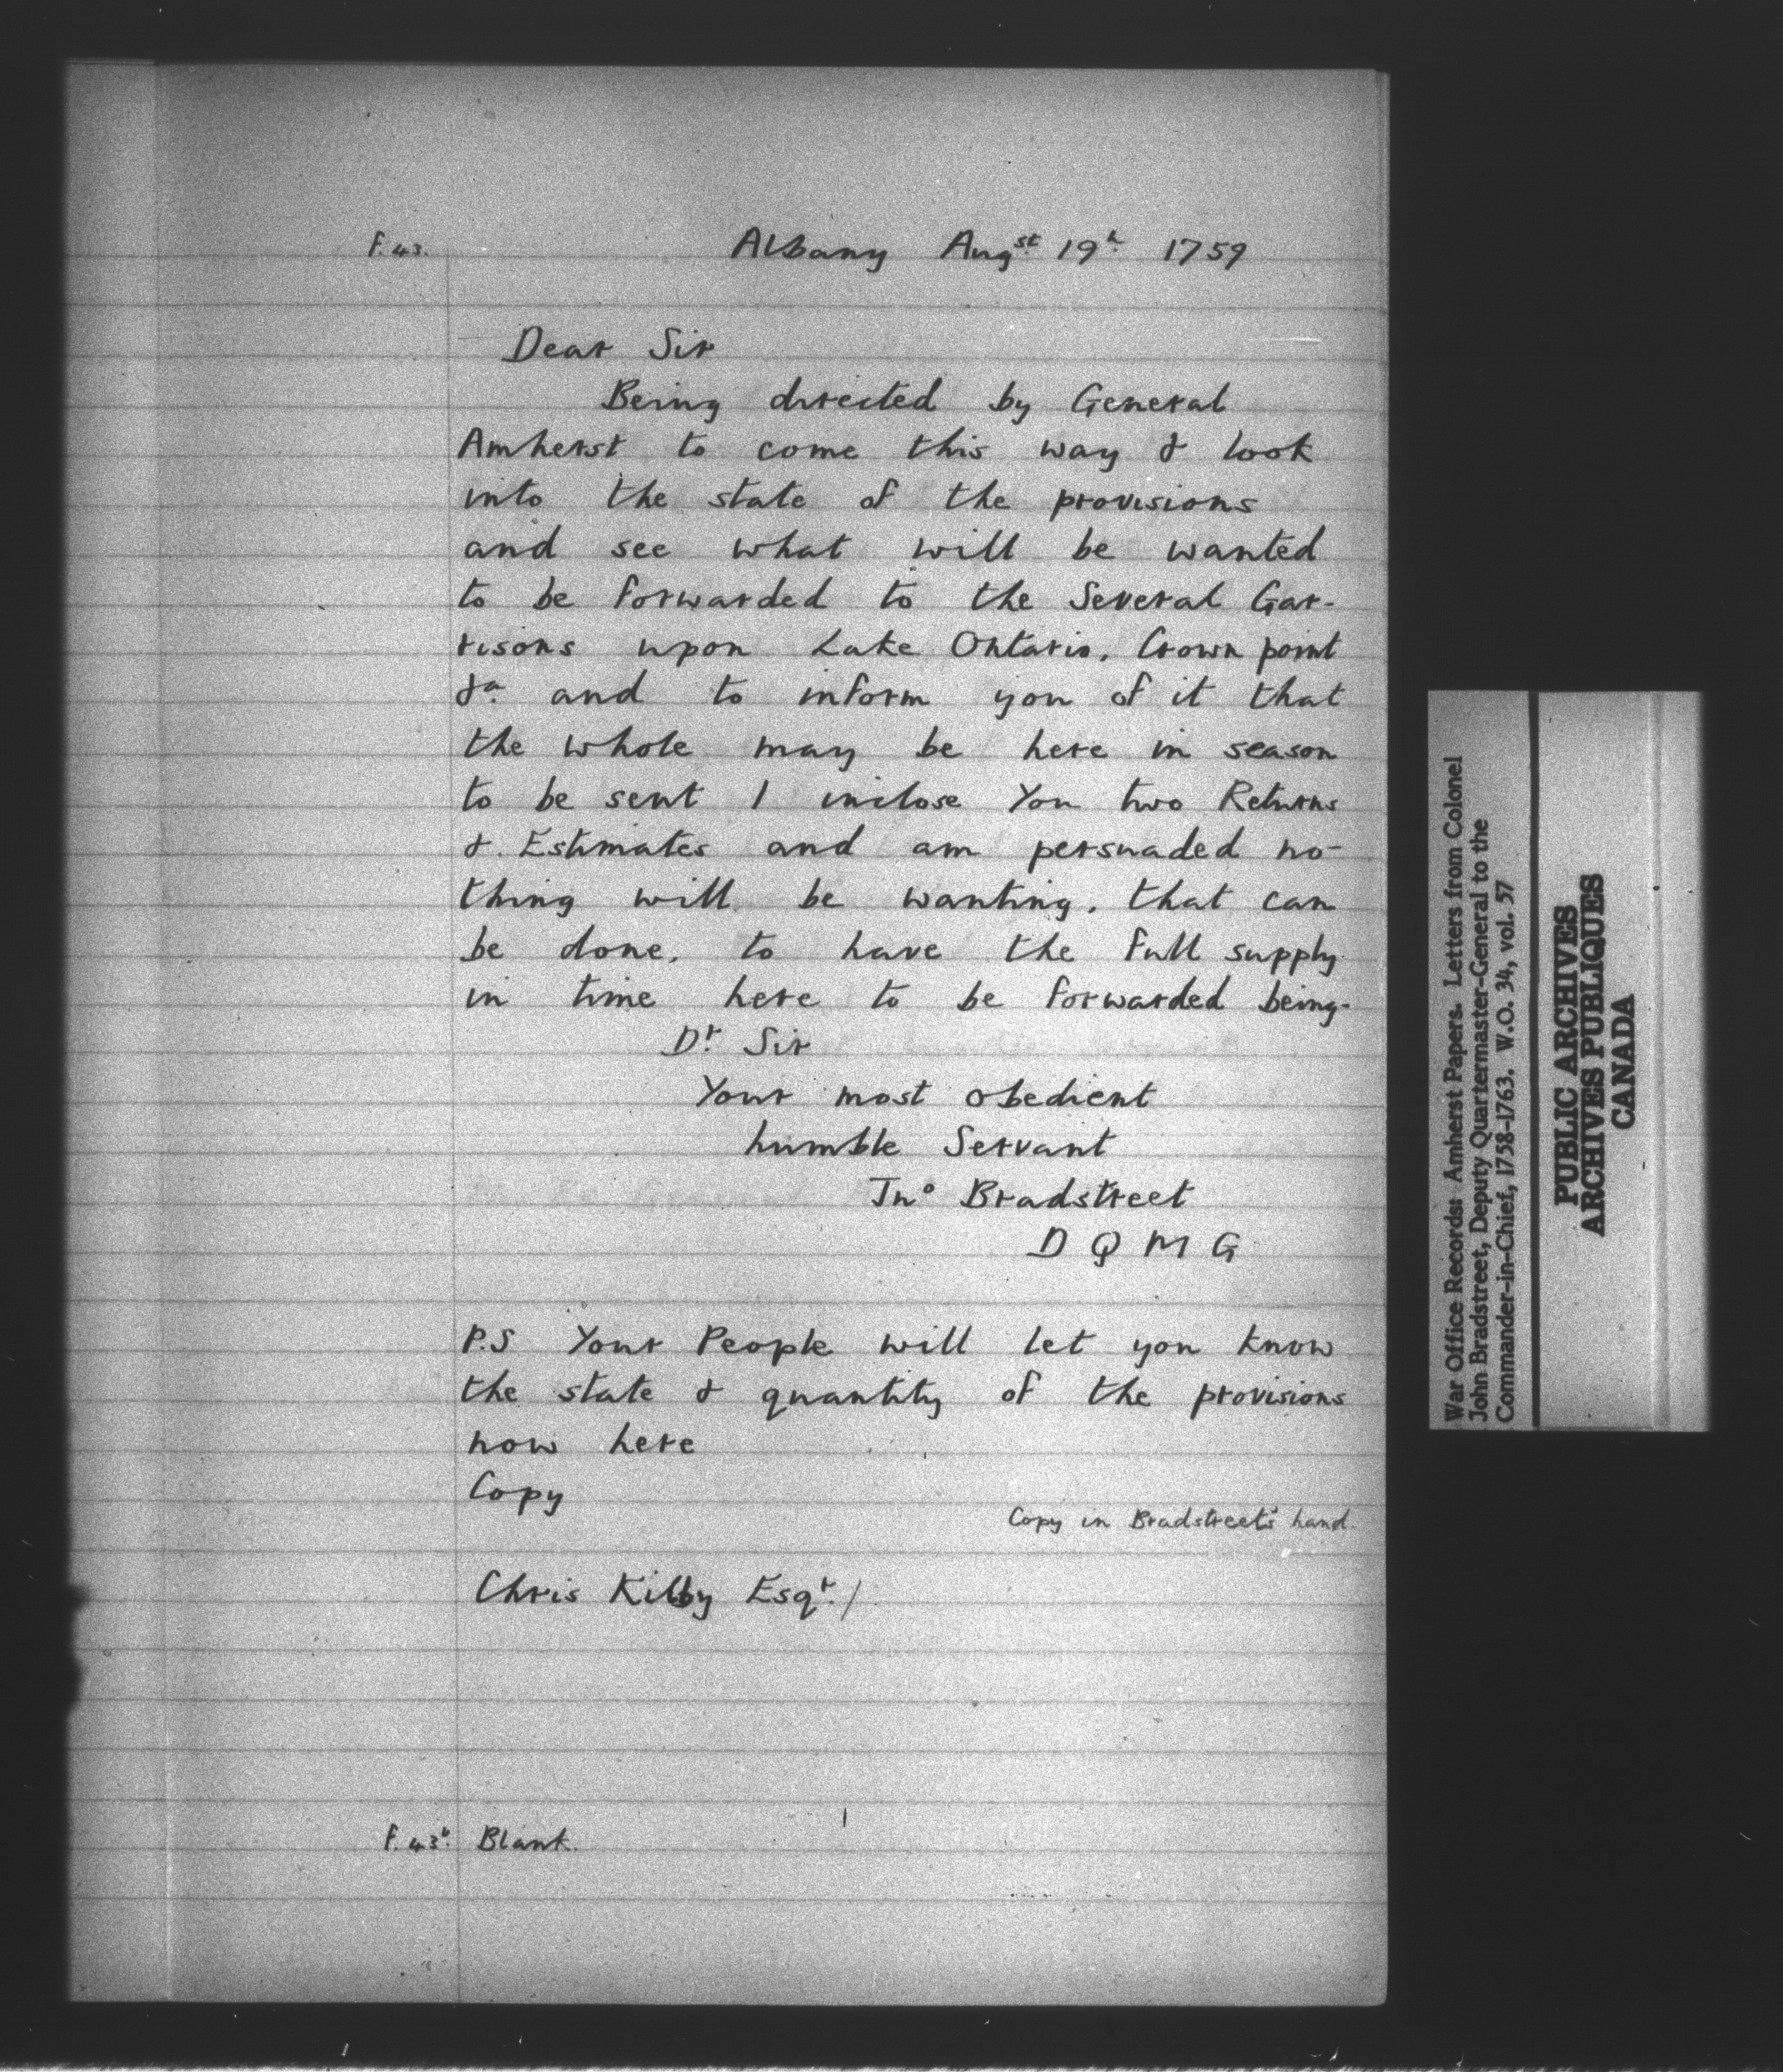 F. 43.
Albany Augst 19h 1759
Dear Sir
Being directed by General
Amherst to come this way & look
into the state of the provisions
and see what will be wanted
to be forwarded to the Several Gar-
risons upon Lake Ontario, Crown point
&a and to inform you of it that
the whole may be here in season
to be sent I inclose You two Returns
& Estimates and am persuaded no-
thing will be wanting, that can
be done, to have the full supply
in time here to be forwarded being
Dr Sir
Your most obedient
humble Servant
Jno Bradstreet
D Q M G
P.S Your People will let you know
the state & quantity of the provisions
now here
Copy
Copy in Bradstreet's hand.
Chris Kilby Esqr /
F. 43b. Blank.
War Office Records: Amherst Papers. Letters from Colonel
John Bradstreet, Deputy Quartermaster-General to the
Commander-in-Chief, 1758-1763. W.O. 34, vol. 57
PUBLIC ARCHIVES
ARCHIVES PUBLIQUES
CANADA